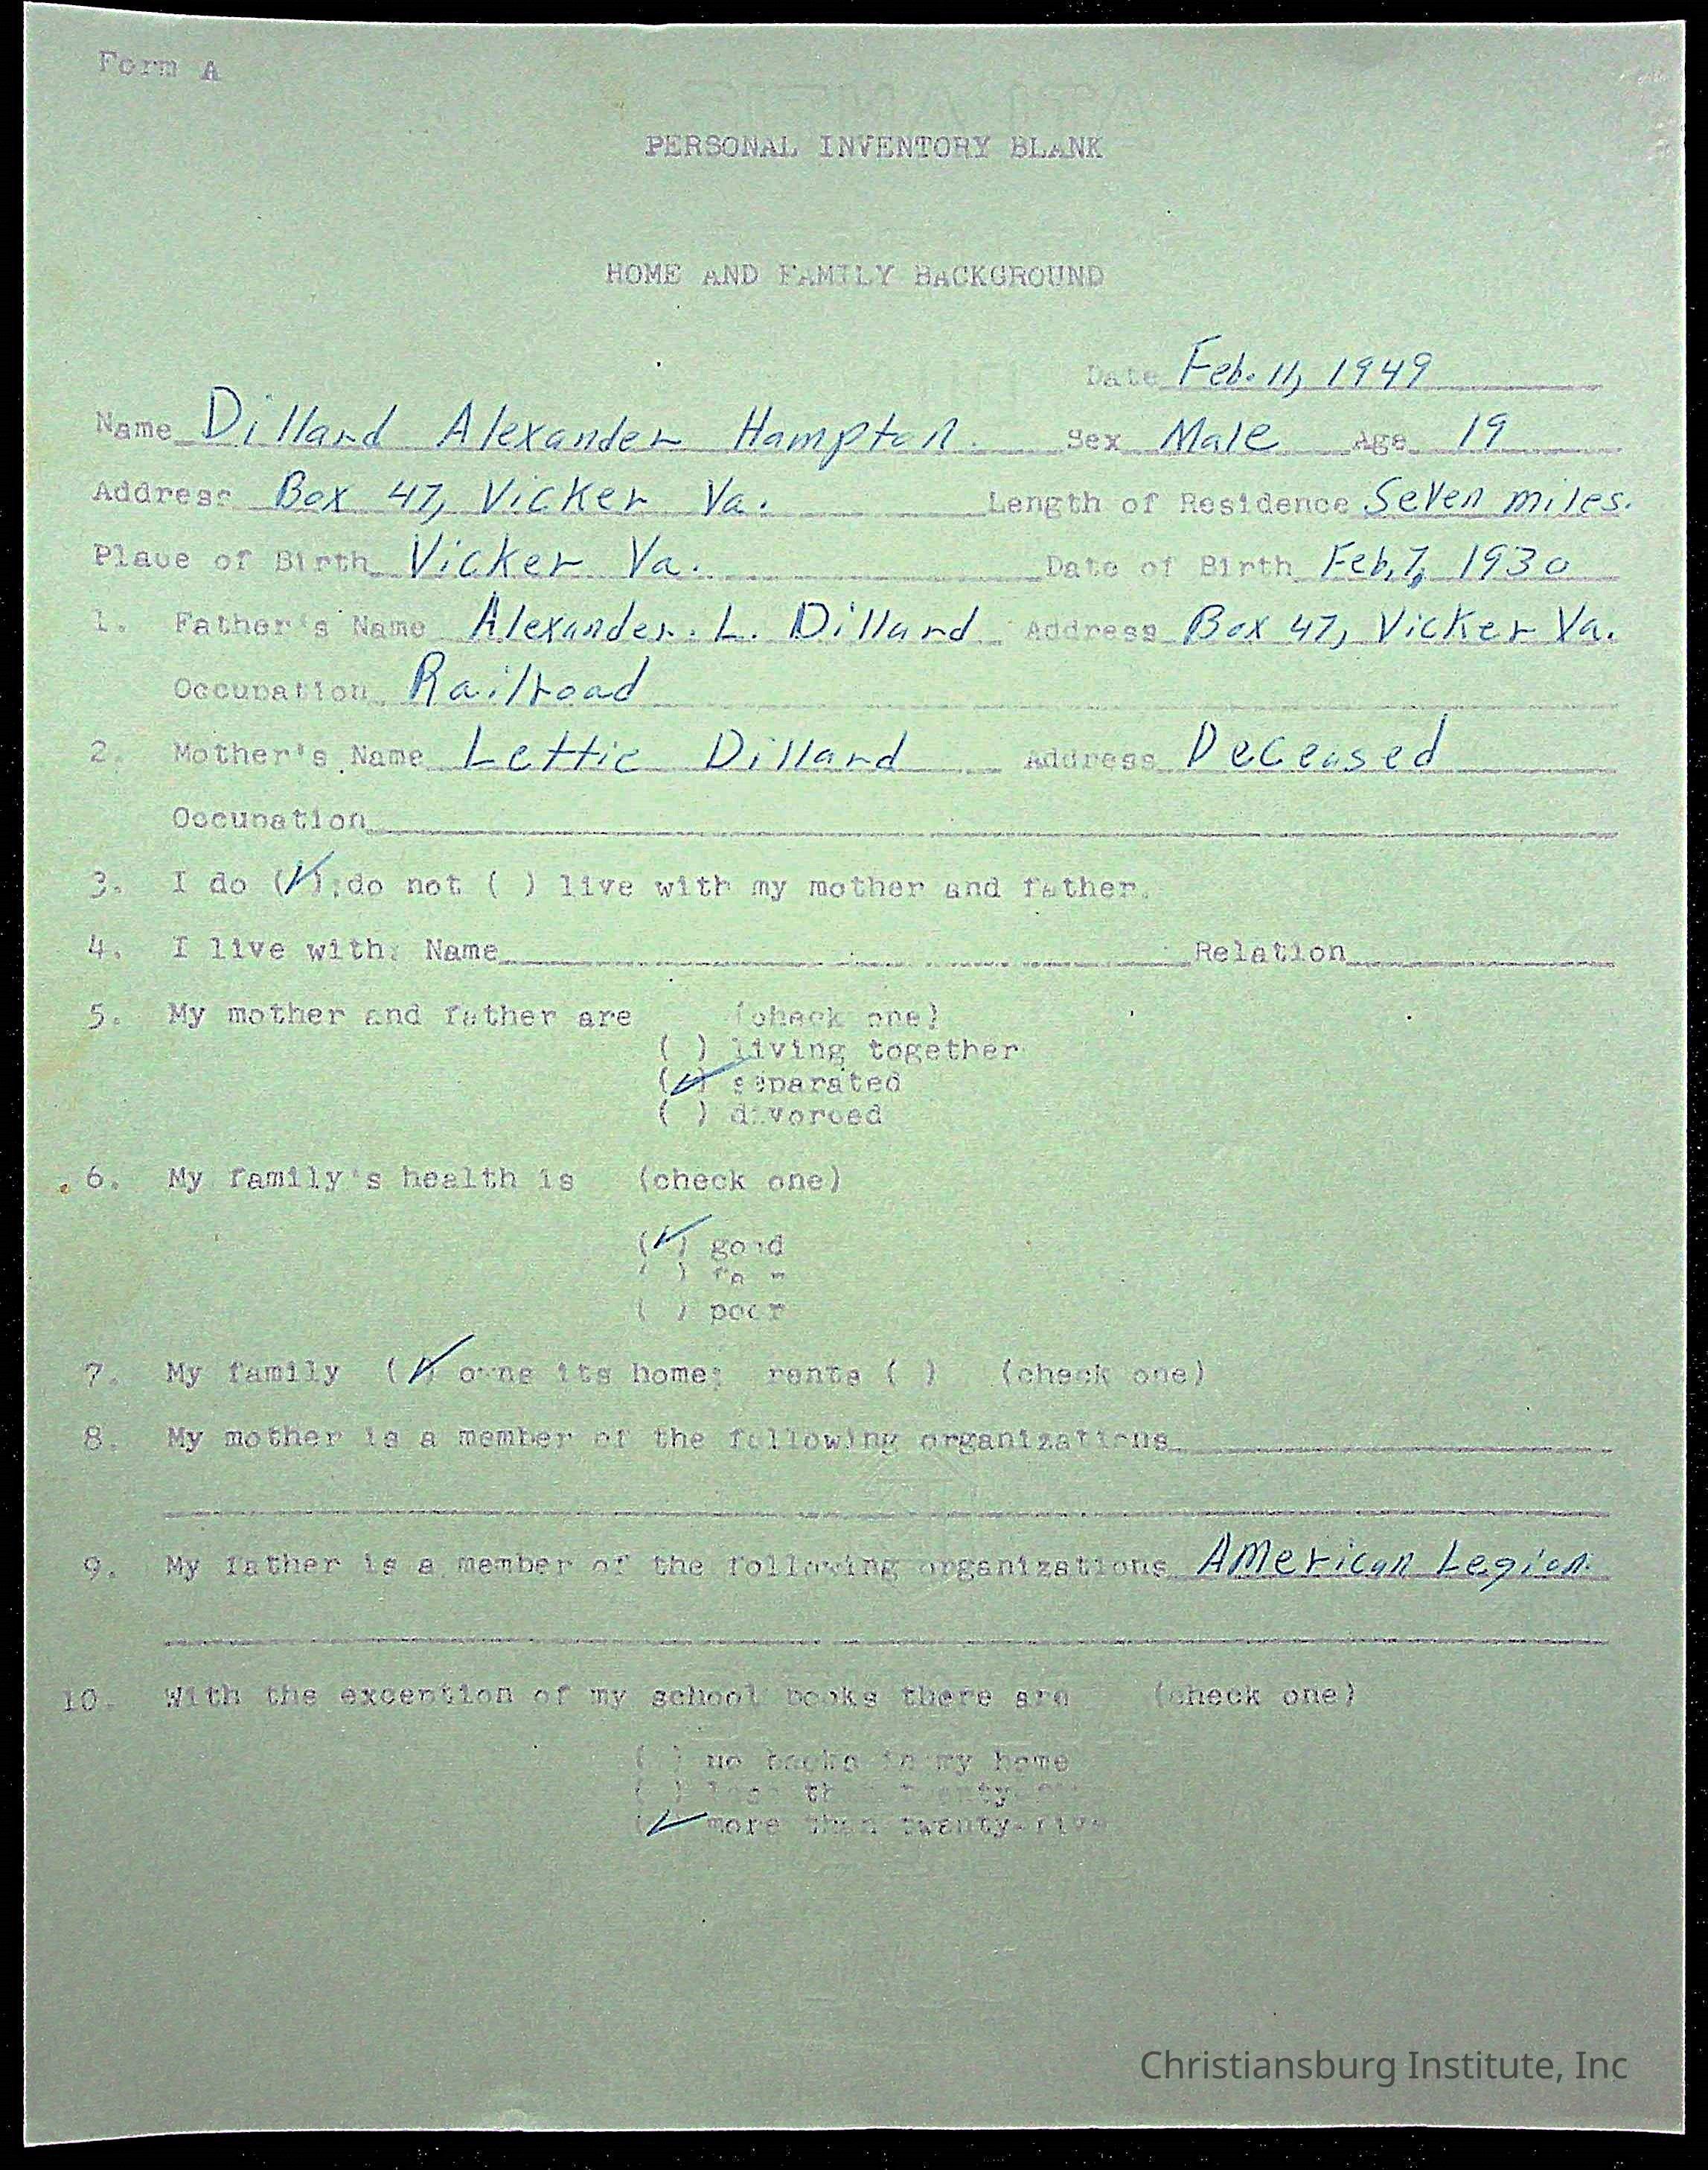 Form A
PERSONAL INVENTORY BLANK
HOME AND FAMILY BACKGROUND
Date Feb. 11, 1949
Name Dillard Alexander Hampton. Sex Male Age 19
Address Box 47, Vicker Va. Length of Residence Seven miles.
Place of Birth Vicker Va. Date of Birth Feb, 7, 1930
1. Father's Name Alexander. L. Dillard Address Box 47, Vicker Va.
Occupation Railroad
2. Mother's Name Lettie Dillard Address Deceased
Occupation
3. I do (✓); do not ( ) live with my mother and father.
4. I live with: Name Relation
5. My mother and father are (check one)
( ) living together
(✓) separated
( ) divorced
6. My family's health is (check one)
(✓) good
( ) fair
( ) poor
7. My family (✓) owns its home; rents ( ) (check one)
8. My mother is a member of the following organizations
9. My father is a member of the following organizations American Legion.
10. With the exception of my school books there are (check one)
( ) no books in my home
( ) less than twenty-five
(✓) more than twenty-five
Christiansburg Institute, Inc